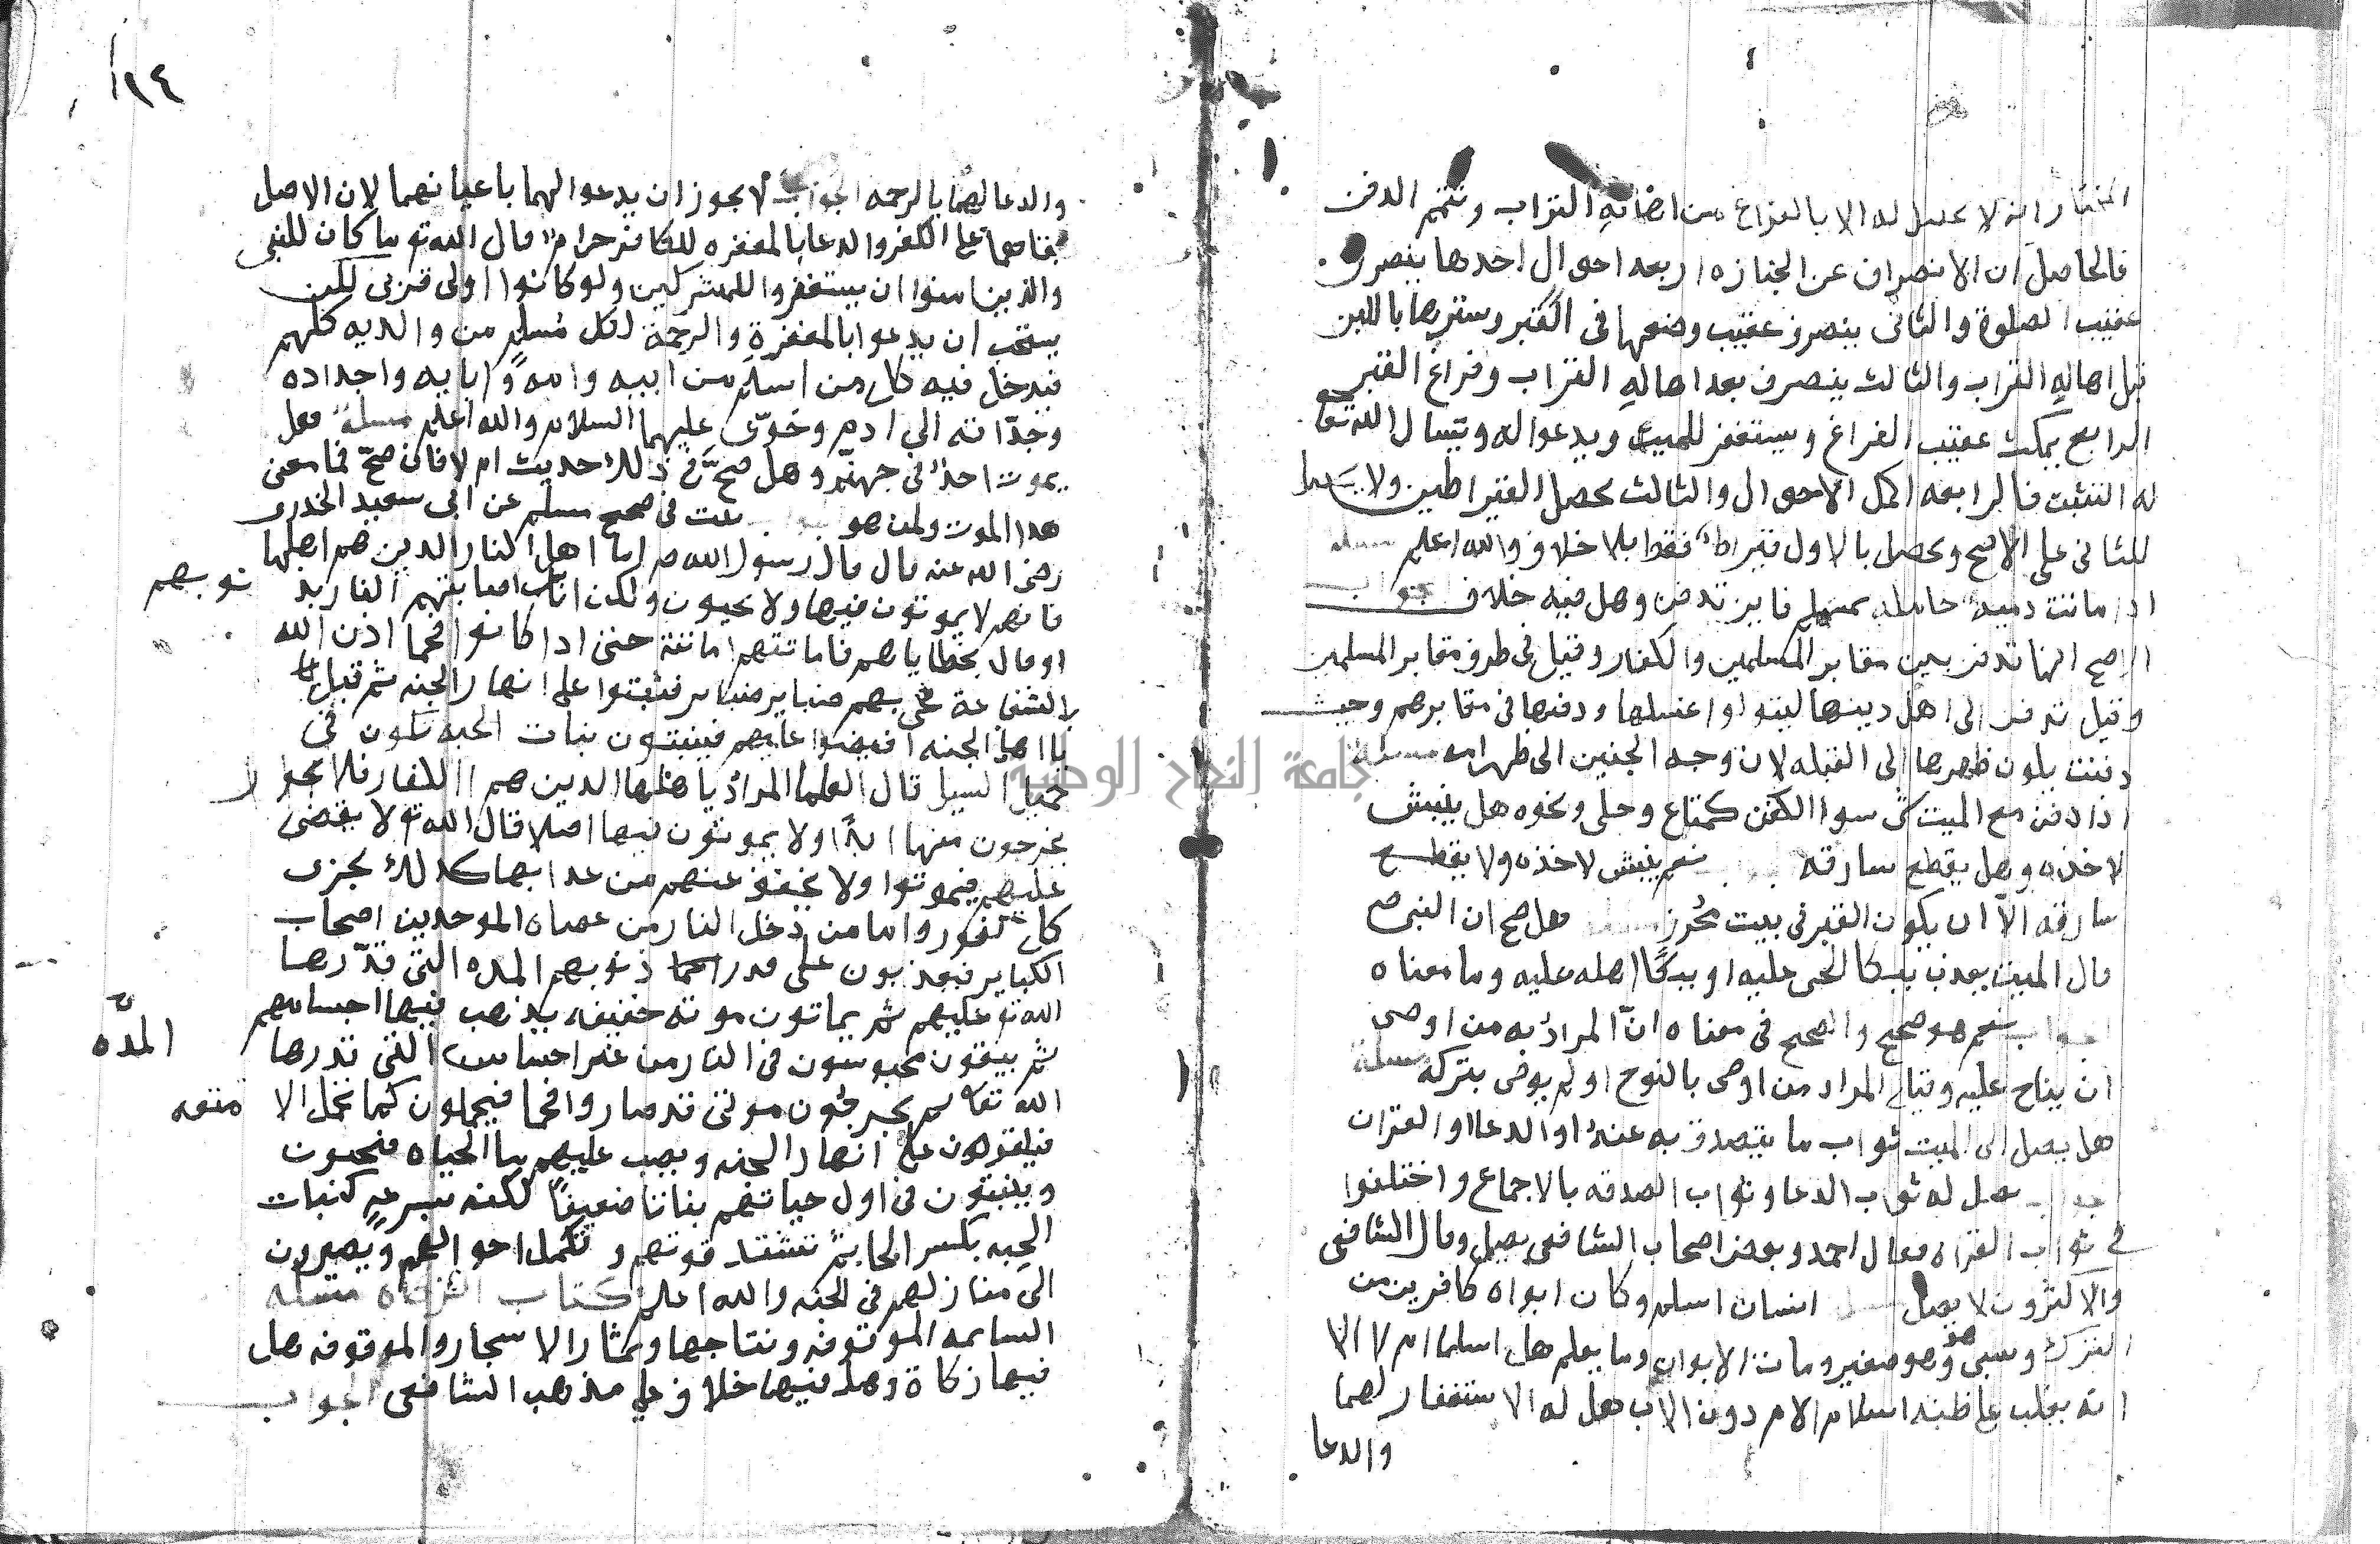 المختار انه لا يحصل له الا بالفراغ من اضافه التراب وتتميم الدفن
فالحاصل ان الانصراف عن الجنازه اربعه احوال احدها ينصرف
عقيب الصلوة والثانى ينصرف عقيب وضعها فى القبر وسترها باللبن
قبل اهاله التراب والثالث ينصرف بعد اهاله التراب وفراغ القبر
الرابع يمكث عقيب الفراغ ويستغفر للميت ويدعوا له ويسال الله تعا
له التثبت فالرابعه اكمل الاحوال والثالث يحصل القيراطين ولا يحصل
للثانى على الاصح ويحصل بالاول قيراط فقط بلا خلاف والله اعلم مسله
اذا ماتت ذميه حامله بمسلم فاين تدفن وهل فيه خلاف جواب
الاصح انها تدفن بين مقابر المسلمين والكفار وقيل فى طرف مقابر المسلمين
وقيل تدفن الى اهل دينها ليتولوا غسلها ودفنها فى مقابرهم وحيث
دفنت يكون ظهرها الى القبله لان وجه الجنين الى ظهرامه مسله
اذا دفن مع الميت شى سوا الكفن كمتاع وحلى ونحوه هل ينبش
لاخذه وهل يقطع سارقه نعم ينبش لاخذه ولا يقطع
سارقه الا ان يكون القبر فى بيت محرز هل صح ان النبى ص
قال الميت يعذب ببكا الحى عليه او ببكا اهله عليه وما معناه
جواب نعم هو صحيح والصحيح فى معناه ان المراد به من اوصى
ان يناح عليه وقيل المراد من اوصى بالنوح او لم يوص بتركه مسلة
هل يصل الى الميت ثواب ما يتصدق به عنه او الدعا او القران
جواب يصل له ثواب الدعا وثواب الصدقه بالاجماع واختلفوا
فى ثواب القراه فقال احمد وبعض اصحاب الشافعى يصل وقال الشافعى
والاكثرون لا يصل انسان اسلم وكان ابواه كافرين من
الترك وسبى هو وهو صغير ومات الابوان وما يعلم هل اسلما ام لا الا
انه يغلب على ظنه اسلام الام دون الاب هل له الاستغفار لهما
والدعا
١٤
والدعا لهما بالرحمه الجواب لا يجوز ان يدعوا لهما باعيانهما لان الاصل
بقاهما على الكفر والدعا بالمغفره للكافر حرام قال الله تع ما كان للنبى
والذين امنوا ان يستغفروا للمشركين ولو كانوا اولى قربى لكن
يستحب ان يدعوا بالمغفرة والرحمة لكل مسلم من والديه كلهم
فيدخل فيه كل من اسلم من ابيه وامه وابايه واجداده
وجداته الى ادم وحوى عليهما السلام والله اعلم مسلة هل
يموت احد فى جهنم وهل صح فى ذلك حديث ام لا فان صح فما معنى
هذا الموت ولمن هو ثبت فى صحيح مسلم عن ابى سعيد الخدرى
رضى الله عنه قال قال رسول الله ص اما اهل النار الذين هم اهلها
فانهم لا يموتون فيها ولا يحيون ولكن ناس اصابتهم النار بذنوبهم
او قال بخطاياهم فاماتتهم اماتة حتى اذا كانوا فحما اذن الله
بالشفاعة فجى بهم ضباير ضباير فبثوا على انهار الجنه ثم قيل
يا اهل الجنه افيضوا عليهم فينبتون نبات الحبه تكون فى
حميل السيل قال العلما المراد باهلها الذين هم الكفار فلا
يخرجون منها ابدا ولا يموتون فيها اصلا قال الله تع لا يقضى
عليهم فيموتوا ولا يخفف عنهم من عذابها كذلك نجزى
كل كفور واما من دخل النار من عصاه الموحدين اصحاب
الكباير فيعذبون على قدر ذنوبهم المده التى قدرها
الله تع عليهم ثم يماتون موتة خفيفه يذهب فيها احساسهم
ثم يبقون محبوسون فى النار من غير احساس المده التى قدرها
الله تعا ثم يخرجون موتى قد صاروا فحما فيحملون كما تحمل الامتعه
فيلقون على انهار الجنه ويصب عليهم ما الحياه فيحيون
وينبتون فى اول حياتهم نباتا ضعيفا لكنه سرعة كنبات
الحبه بكسر الحا ثم تشتد قوتهم وتكمل احوالهم ويصيرون
الى منازلهم فى الجنه والله اعلم كتاب الزكاه مسله
السايمه الموقوفه ونتاجها وثمار الاشجار الموقوفه هل
فيها زكاة وهل فيها خلاف على مذهب الشافعى الجواب
جامعة النجاح الوطنية